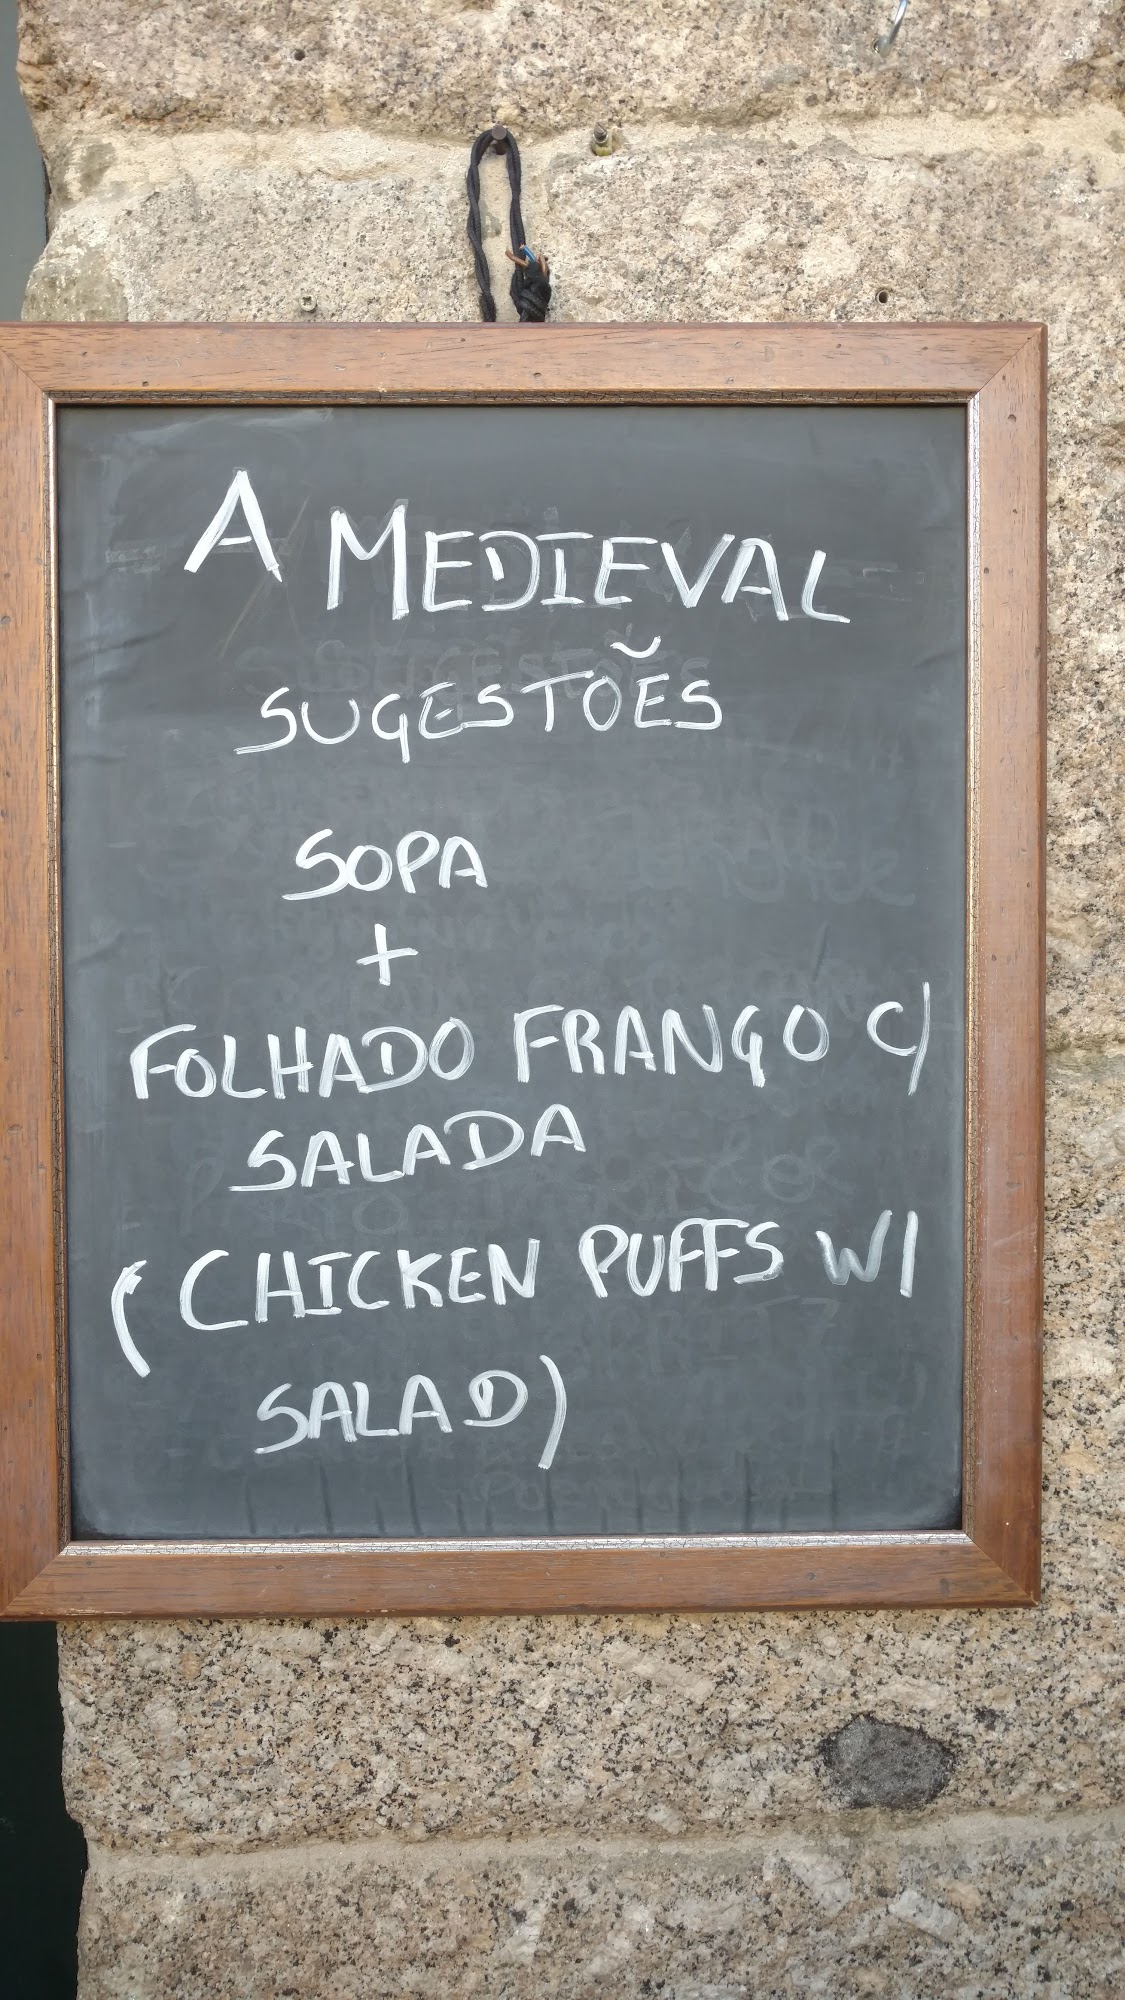 A MEDIEVAL
SUGESTOẼS
SOPA
+
FOLHADO FRANGO C/
SALADA
(CHICKEN PUFFS W/
SALAD)